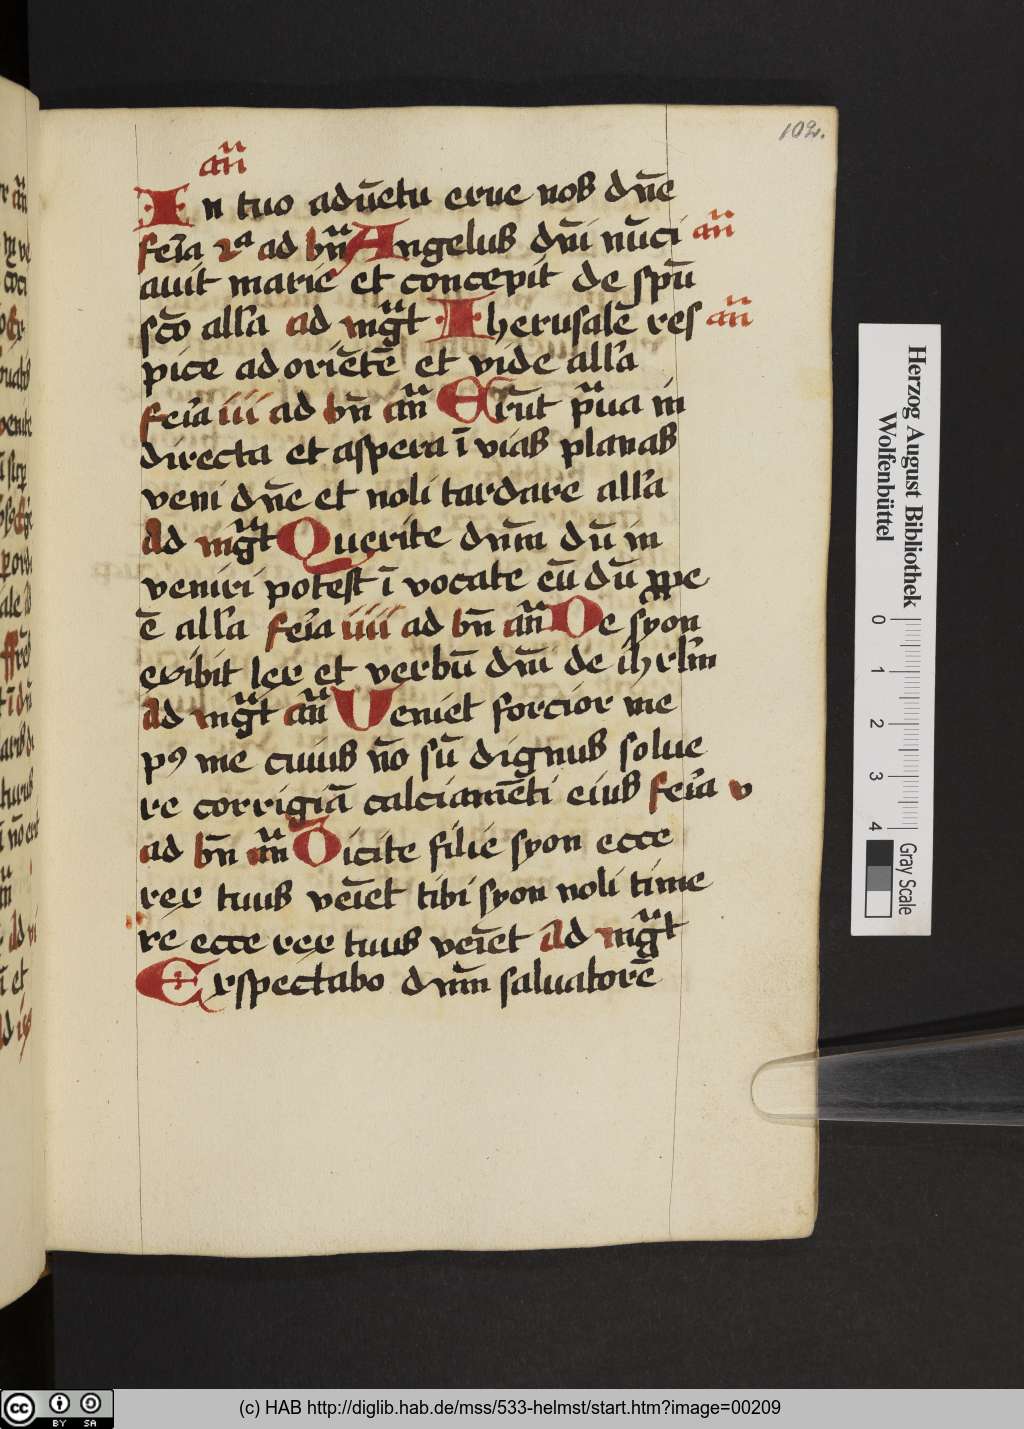 102.
an̄
In tuo adūetu erue nos dn̄e
feīa 2ª ad bn̄ Angelus dn̄i nūci an̄
auit marie et concepit de spū
sc̄o all'a ad mḡt Iherusalē res an̄
pice ad oriētē et vide all'a
feīa iii ad bn̄ an̄ Erūt p̄ua in
directa et aspera ī vias planas
veni dn̄e et noli tardare all'a
Ad mḡt Querite dn̄m dū in
veniri potest ī vocate eū dū ꝓpe
ē all'a feīa iiii ad bn̄ an̄ De syon
exibit lex et verbū dn̄i de ihrl̄m
Ad mḡt an̄ Ueniet forcior me
pꝰ me cuius nō sū dignus solue
re corrigiā calciamēti eius feīa v
ad bn̄ an̄ Dicite filie syon ecce
rex tuus veīet tibi syon noli time
re ecce rex tuus veīet Ad mḡt
Exspectabo dn̄m saluatorē
Herzog August Bibliothek
Wolfenbüttel
0 1 2 3 4
Gray Scale
cc BY SA
(c) HAB http://diglib.hab.de/mss/533-helmst/start.htm?image=00209